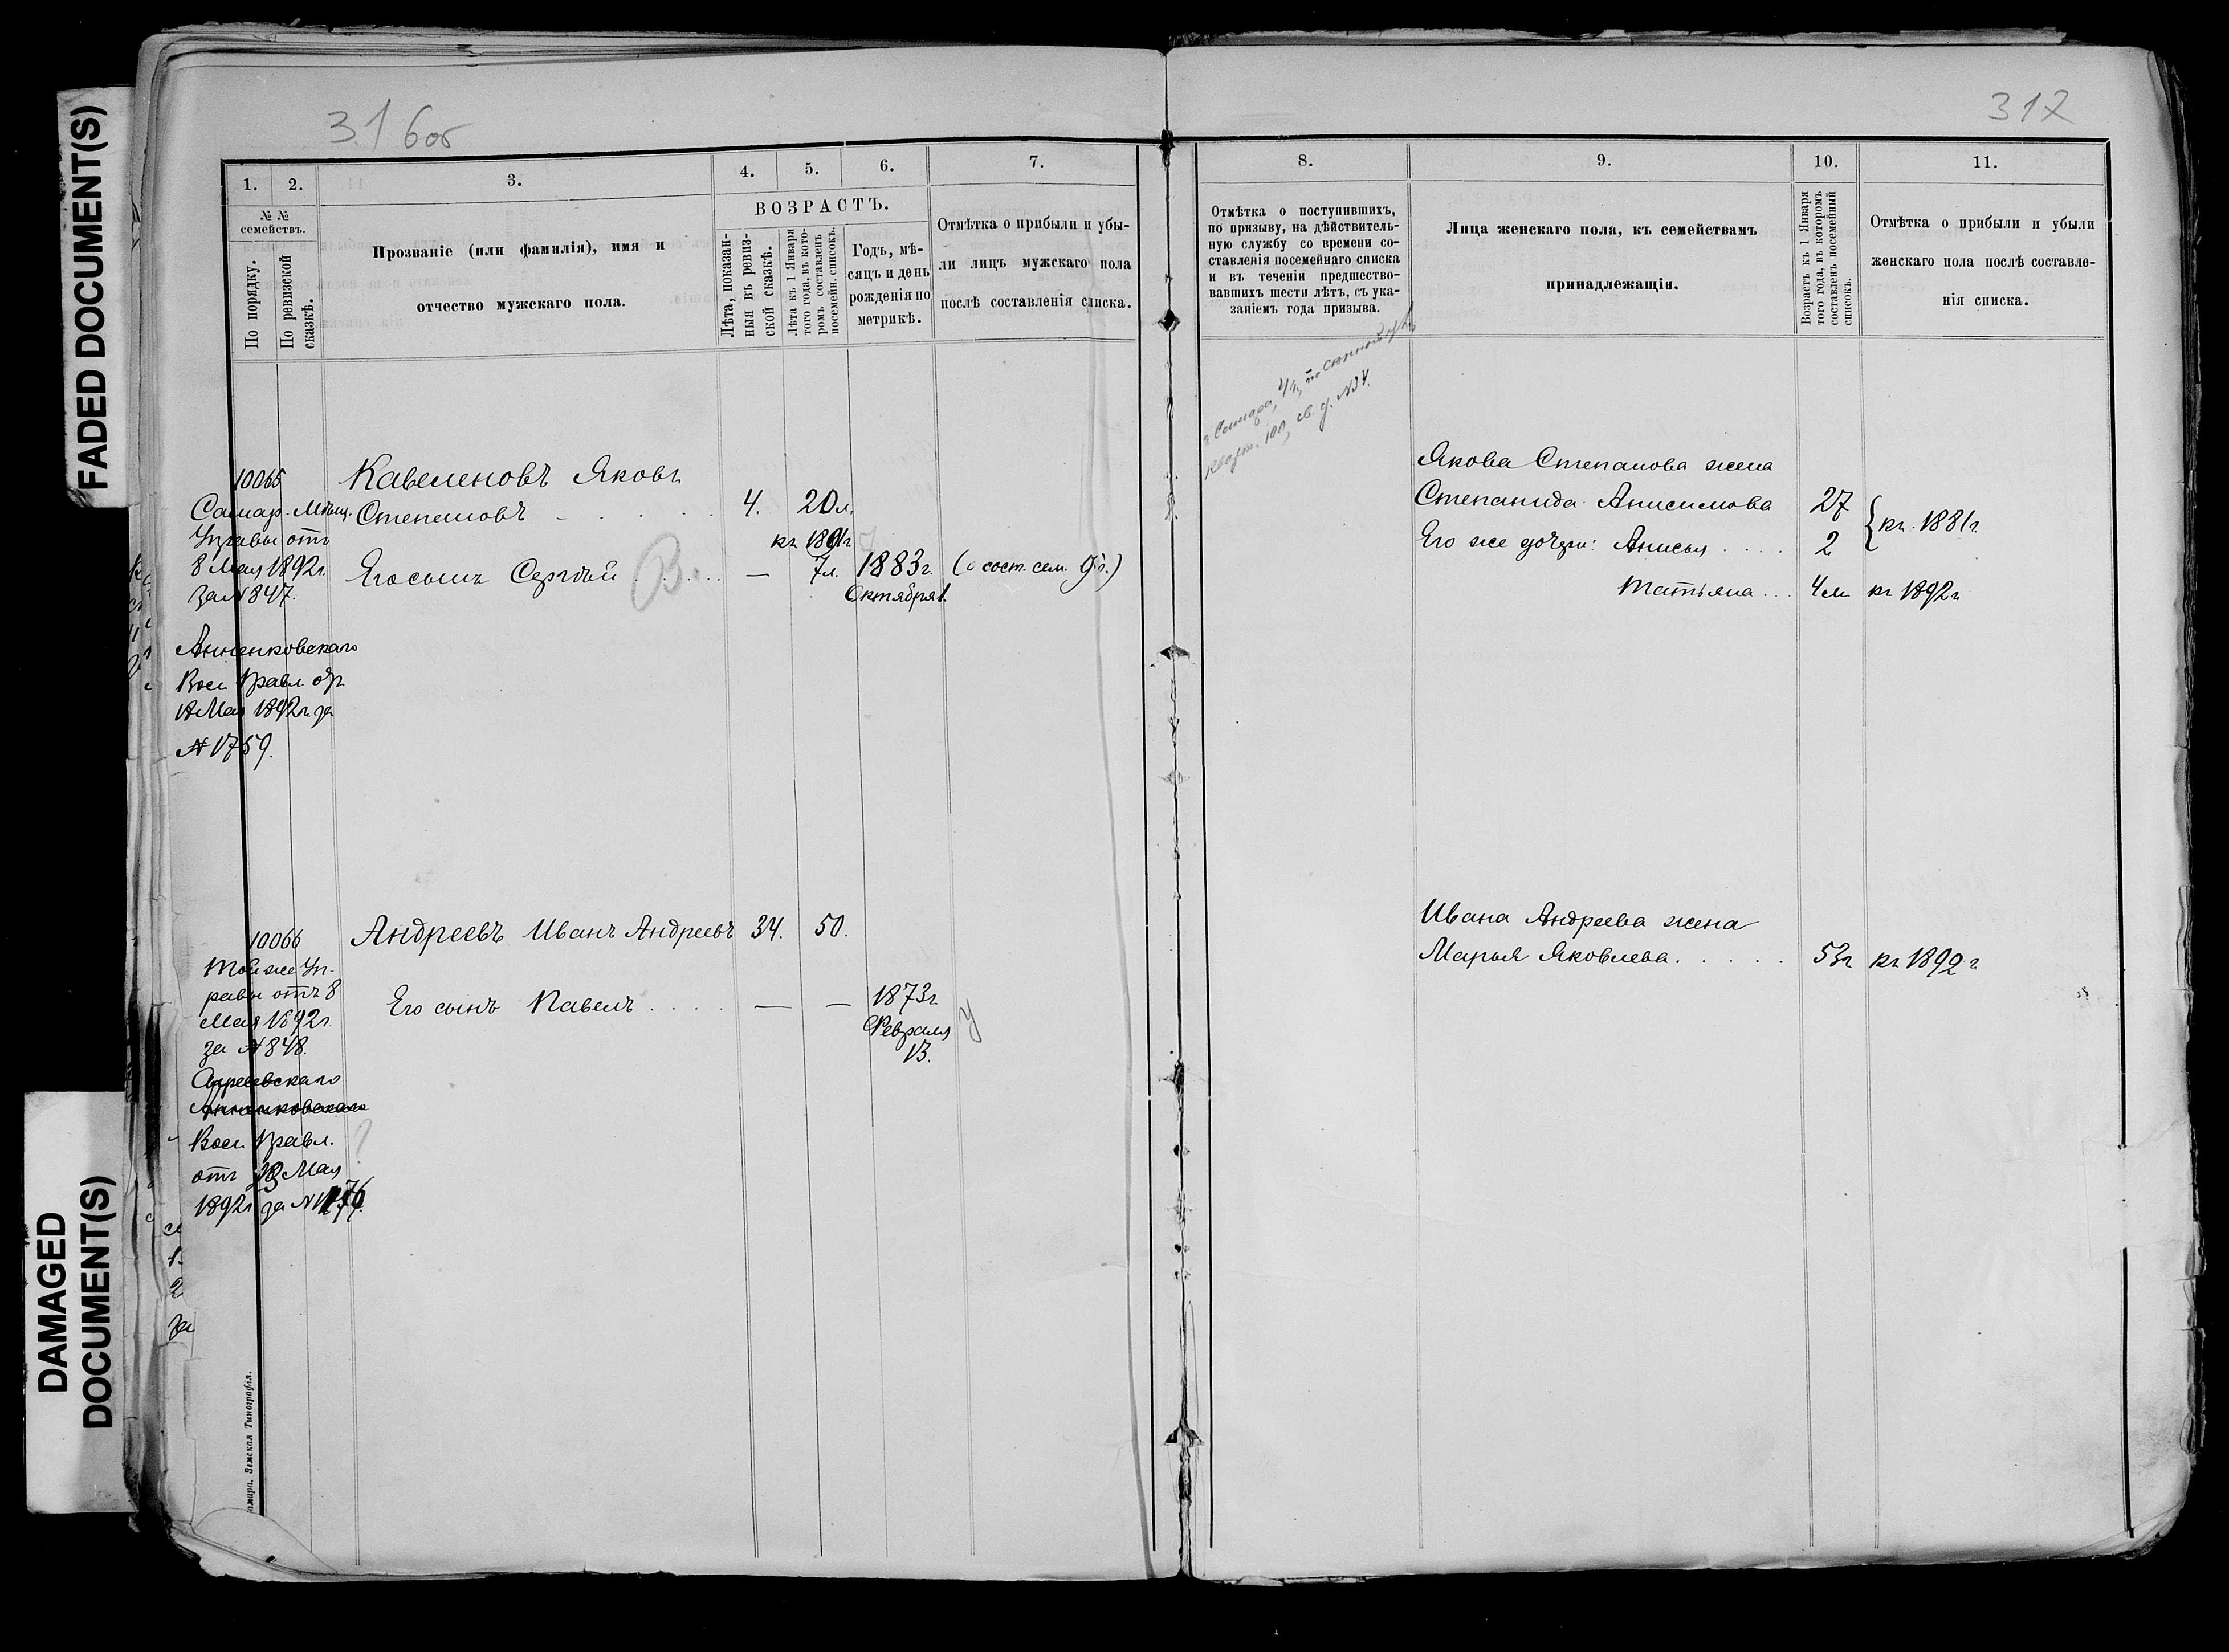 FADED DOCUMENT(S)
DAMAGED
DOCUMENT(S)
316об
1.
2.
3.
4.
5.
6.
7.
№ №
семействъ.
По порядку.
По ревизской
сказкѣ.
Прозваніе (или фамилія), имя и
отчество мужскаго пола.
ВОЗРАСТЪ.
Лѣта, показан-
ныя въ ревиз-
ской сказкѣ.
Лѣта къ 1 Января
того года, въ кото-
ромъ составленъ
посемейн. списокъ.
Годъ, мѣ-
сяцъ и день
рожденія по
метрикѣ.
Отмѣтка о прибыли и убы-
ли лицъ мужскаго пола
послѣ составленія списка.
10065
Самар. Мѣщ.
Управы отъ
8 Мая 1892г.
за № 847.
Анненковскаго
Вол. Правл. отъ
Мая 1892г. за
№ 1759.
Кавеленовъ Яковъ
Степановъ 4. 20л.
къ 1881г
Его сынъ Сергѣй . . . — 7л. 1883г. (о сост. сем. )
Октября 1.
В.
10066
Той же Уп-
равы отъ 8
Мая 1892г.
за № 848.
Анненковскаго
Вол. Правл.
отъ Мая
1892г. за №
Андреевъ Иванъ Андреевъ 34. 50.
Его сынъ Павелъ . . . . — — 1873г
Февраля
13.
У
?
Самара. Земская Типографія.
317
8.
9.
10.
11.
Отмѣтка о поступившихъ,
по призыву, на дѣйствитель-
ную службу со времени со-
ставленія посемейнаго списка
и въ теченіи предшество-
вавшихъ шести лѣтъ, съ ука-
заніемъ года призыва.
Лица женскаго пола, къ семействамъ
принадлежащія.
Возрастъ къ 1 Января
того года, въ которомъ
составленъ посемейный
списокъ.
Отмѣтка о прибыли и убыли
женскаго пола послѣ составле-
нія списка.
г. Самара, 4ч,
Кварт. 100, св. д. № 4.
Якова Степанова жена
Степанида Анисимова 27
Его же дочери: Анисья . . . . 2
къ 1881г.
Татьяна . . . 4м къ 1892г
Ивана Андреева жена
Марья Яковлева . . . . . 53г къ 1892г